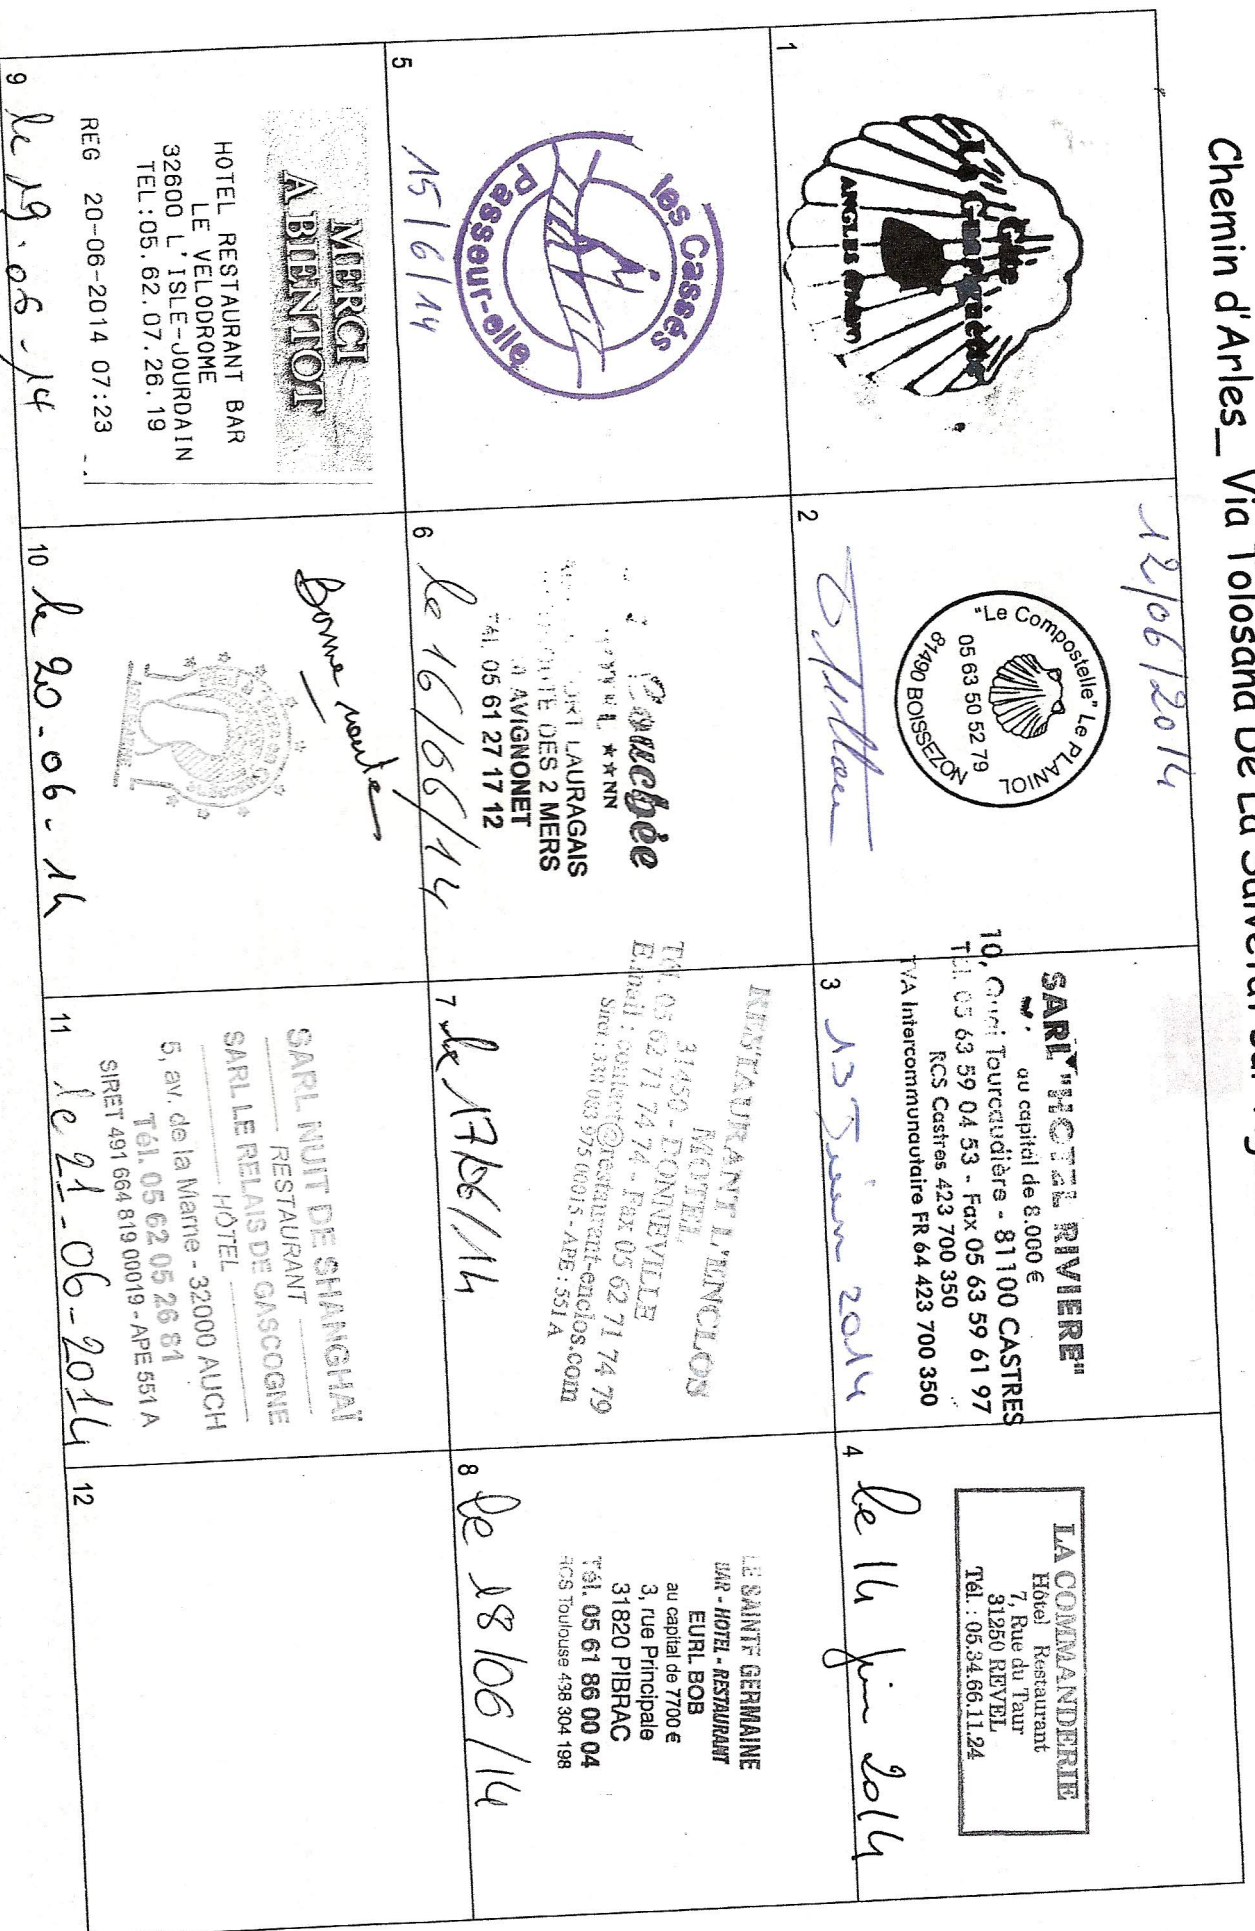 Chemin d'Arles_ Via Tolosana De La
1
Gîte
ANGLES
12/06/2014
"Le Compostelle" Le PLANIOL
05 63 50 52 79
81490 BOISSEZON
2
SARL "HOTEL RIVIERE"
au capital de 8.000 €
10, Quai Tourcaudière - 81100 CASTRES
Tél. 05 63 59 04 53 - Fax 05 63 59 61 97
RCS Castres 423 700 350
TVA Intercommunautaire FR 64 423 700 350
3 13 Juin 2014
LA COMMANDERIE
Hôtel Restaurant
7, Rue du Taur
31250 REVEL
Tél. : 05.34.66.11.24
4 le 14 juin 2014
les Cassés
Passeur-elle
15/6/14
5
Couchée
**NN
LAURAGAIS
DES 2 MERS
AVIGNONET
Tél. 05 61 27 17 12
6 le 16/06/14
RESTAURANT L'ENCLOS
MOTEL
31450 - DONNEVILLE
Tél. 05 62 71 74 74 - Fax 05 62 71 74 79
E.mail : contact@restaurant-enclos.com
Siret : 338 083 975 00015 - APE : 551 A
7 le 17/06/14
LE SAINTE GERMAINE
BAR - HOTEL - RESTAURANT
EURL BOB
au capital de 7700 €
3, rue Principale
31820 PIBRAC
Tél. 05 61 86 00 04
RCS Toulouse 438 304 198
8 le 18/06/14
MERCI
A BIENTOT
HOTEL RESTAURANT BAR
LE VELODROME
32600 L'ISLE-JOURDAIN
TEL:05.62.07.26.19
REG 20-06-2014 07:23
9 le 19.06.14
Bonne route
10 le 20-06-14
SARL NUIT DE SHANGHAÏ
RESTAURANT
SARL LE RELAIS DE GASCOGNE
HÔTEL
5, av. de la Marne - 32000 AUCH
Tél. 05 62 05 26 81
SIRET 491 664 819 00019 - APE 551 A
11 le 21-06-2014
12